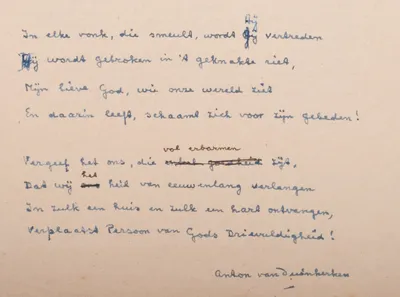 Gij
In elke vonk, die smeult, wordt Gij vertreden
Gij wordt gebroken in 't geknakte riet,
Mijn lieve God, wie onze wereld ziet
En daarin leeft, schaamt zich voor zijn gebeden!
vol erbarmen
Vergeef het ons, die zijt,
het
Dat wij ons heil van eeuwenlang verlangen
In zulk een huis en zulk een hart ontvangen,
Verplaatst Persoon van Gods Drievuldigheid!
Anton van Duinkerken